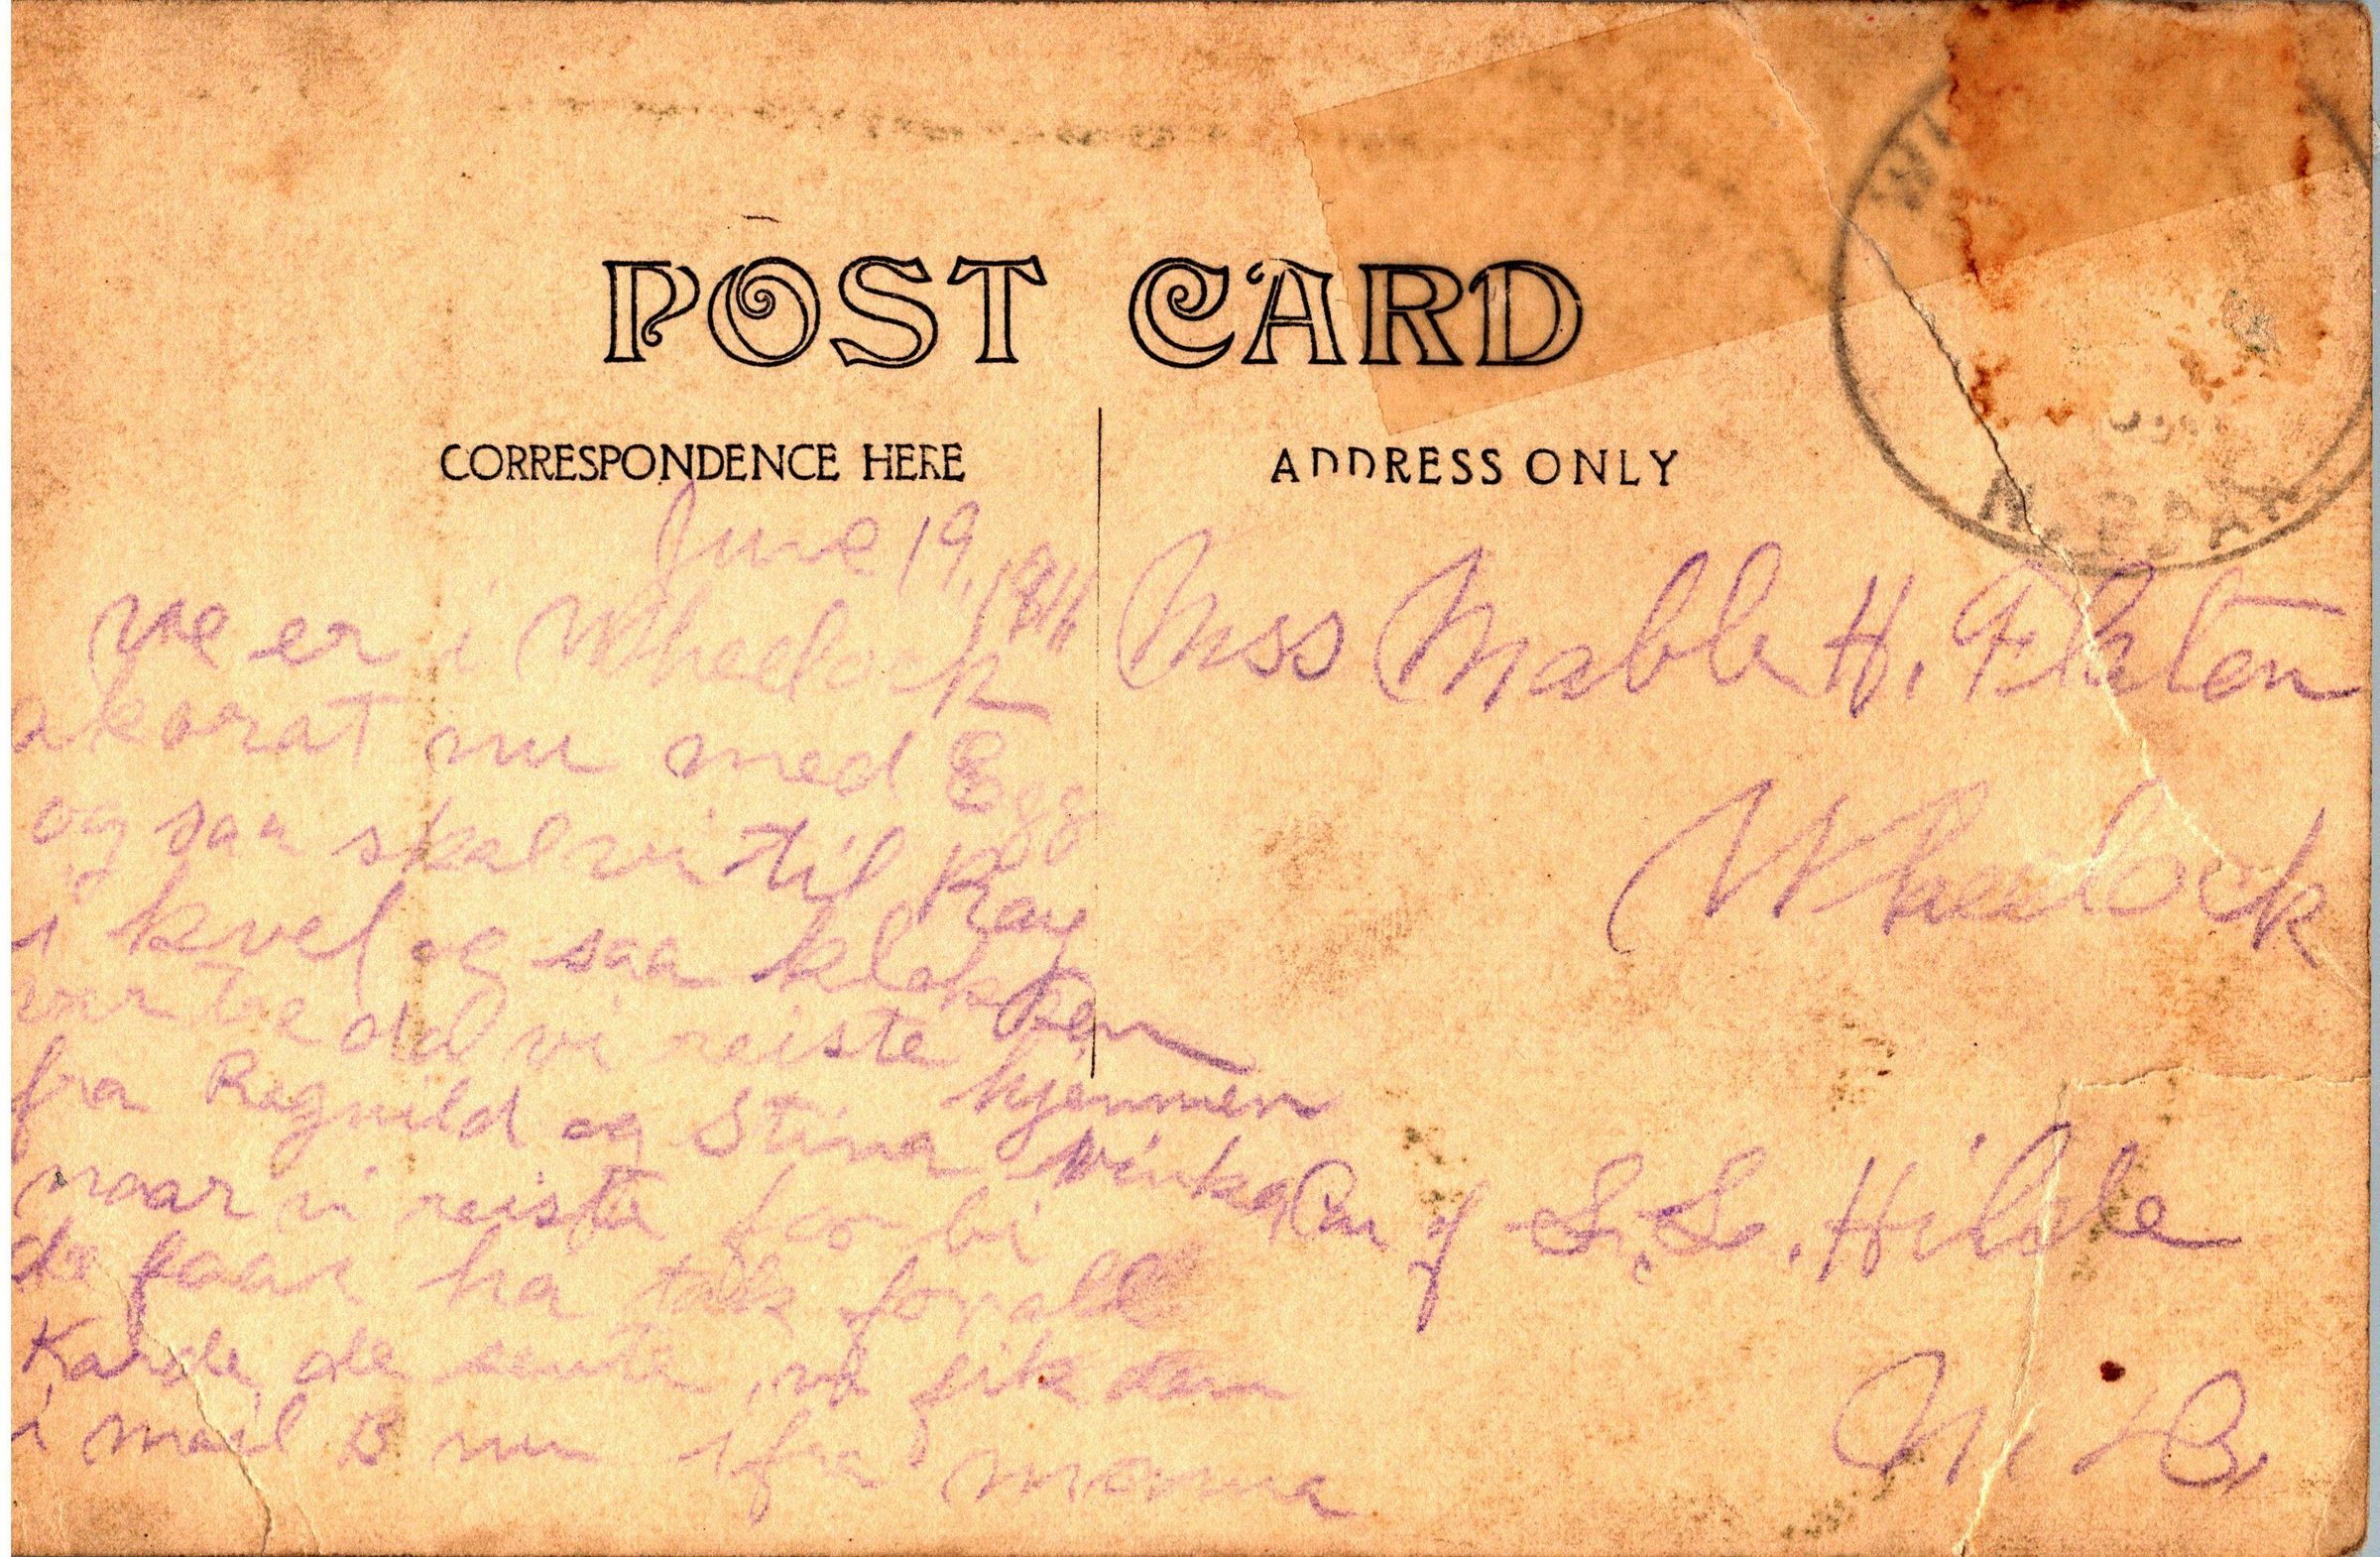 POST CARD
CORRESPONDENCE HERE
ADDRESS ONLY
June 19,
vie er i Wheelock
akorat nu med Egg
og saa skal vi til Ray
i kvel og saa klokken
var tve vi reiste hjemmen
fra Ragnild og Stina
naar vi reiste for bi
de faar ha tak for all
Karde de sente, vi fik dem
i mail B nu ifra mama
Miss Mable H. Flaten
Wheelock
Car of S. L. Hilde
N. D.
N. DAK